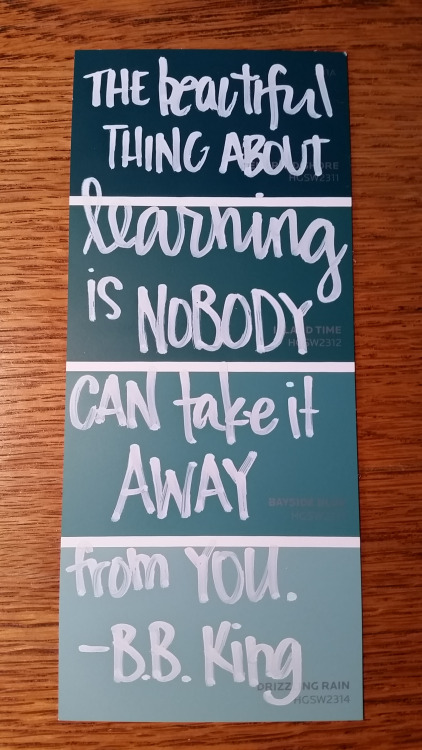 THE beautiful
THING ABOUT
HGSW2311
learning
is NOBODY
ISLAND TIME
HGSW2312
CAN take it
AWAY
BAYSIDE
from YOU.
-B.B. King
DRIZZLING RAIN
HGSW2314